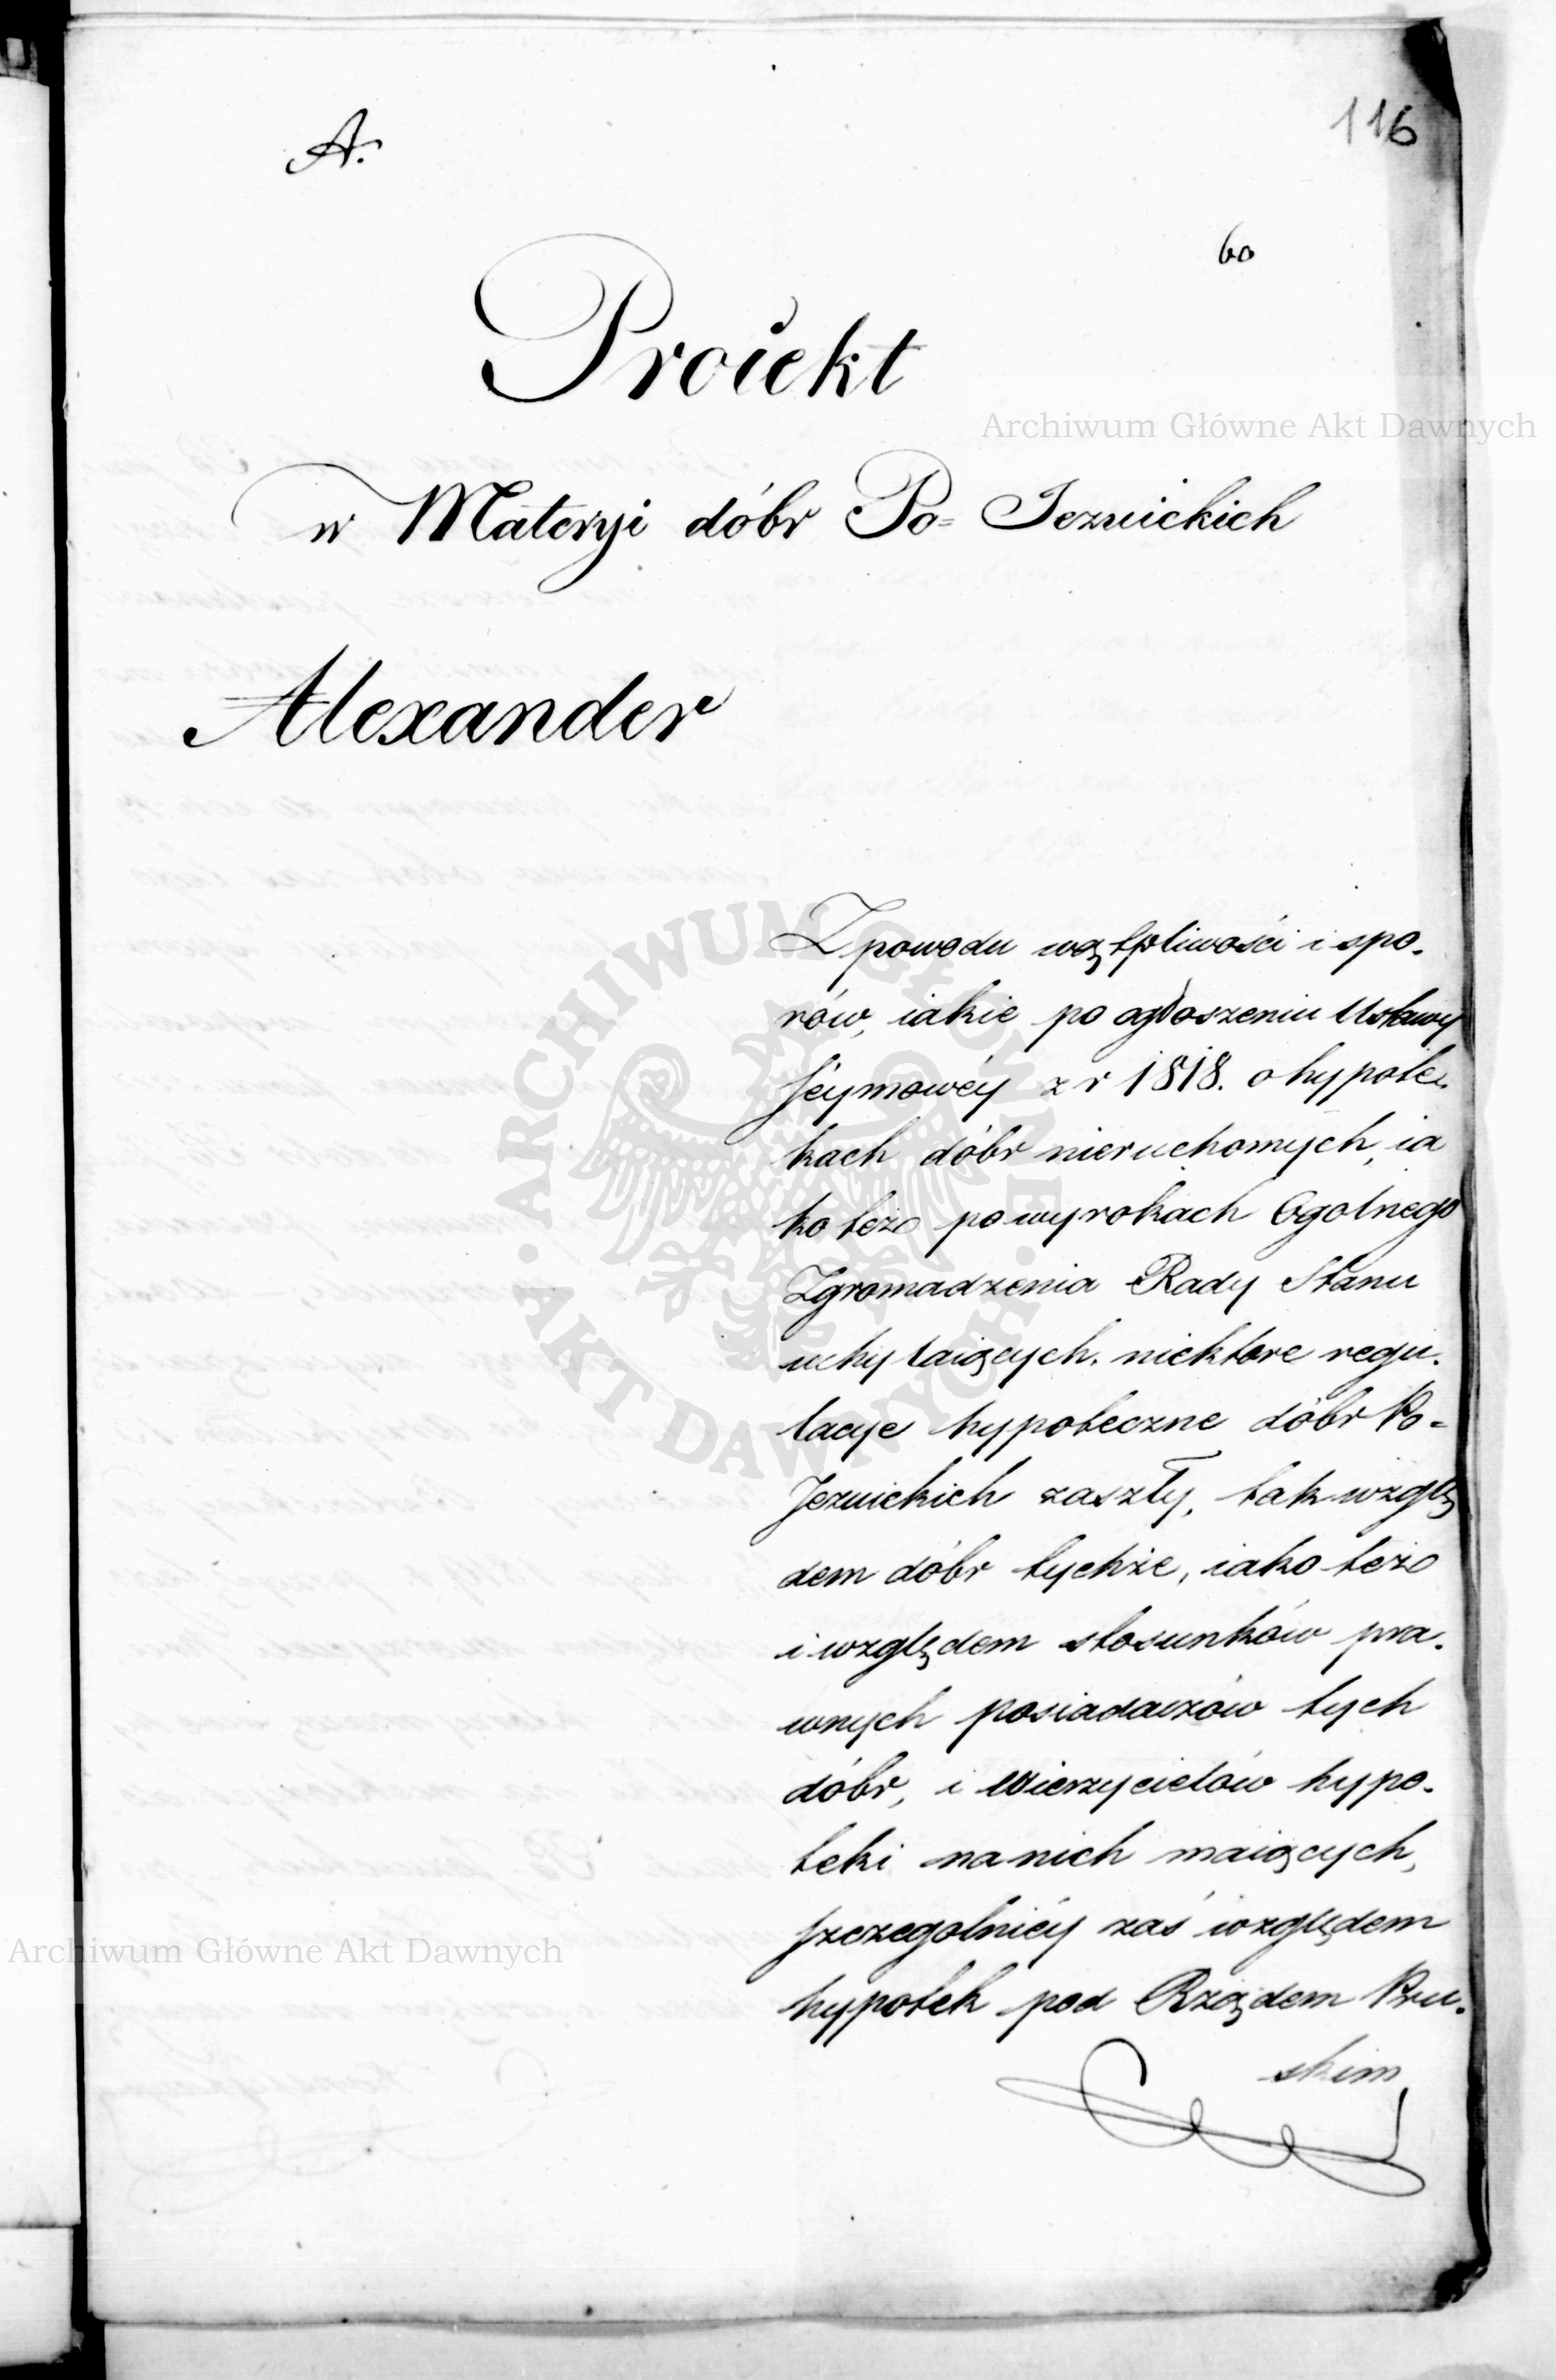 A.
116
60
Proiekt
w Materyi dóbr Po= Jezuickich
Alexander
Archiwum Główne Akt Dawnych
Z powodu wątpliwości i spo.
rów, iakie po ogłoszeniu Ustawy
Séymowéy z r 1818. o hypote.
kach dóbr nieruchomych, ia
ko też po wyrokach Ogolnego
Zgromadzenia Rady Stanu
uchylaiących niektore regu.
lacye hypoteczne dóbr Po=
Jezuickich zaszły, tak wzglę
dem dóbr tychże, iako też
i względem stosunków pra.
wnych posiadaczów tych
dóbr, i Wierzycielów hypo.
teki na nich maiących,
szczegolniéy zaś względem
hypotek pod Rządem Pru.
skim
ARCHIWUM GŁÓWNE · AKT DAWNYCH ·
Archiwum Główne Akt Dawnych